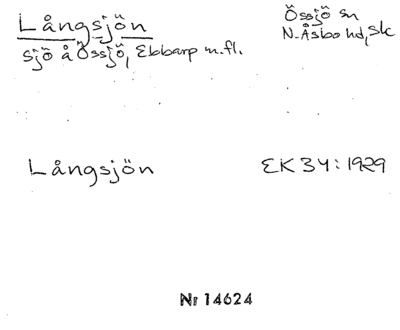 Långsjön
sjö å Össjö, Ebbarp m.fl.
Össjö sn
N.Åsbo hd, Sk
Långsjön
EK 34:1929
Nr 14624